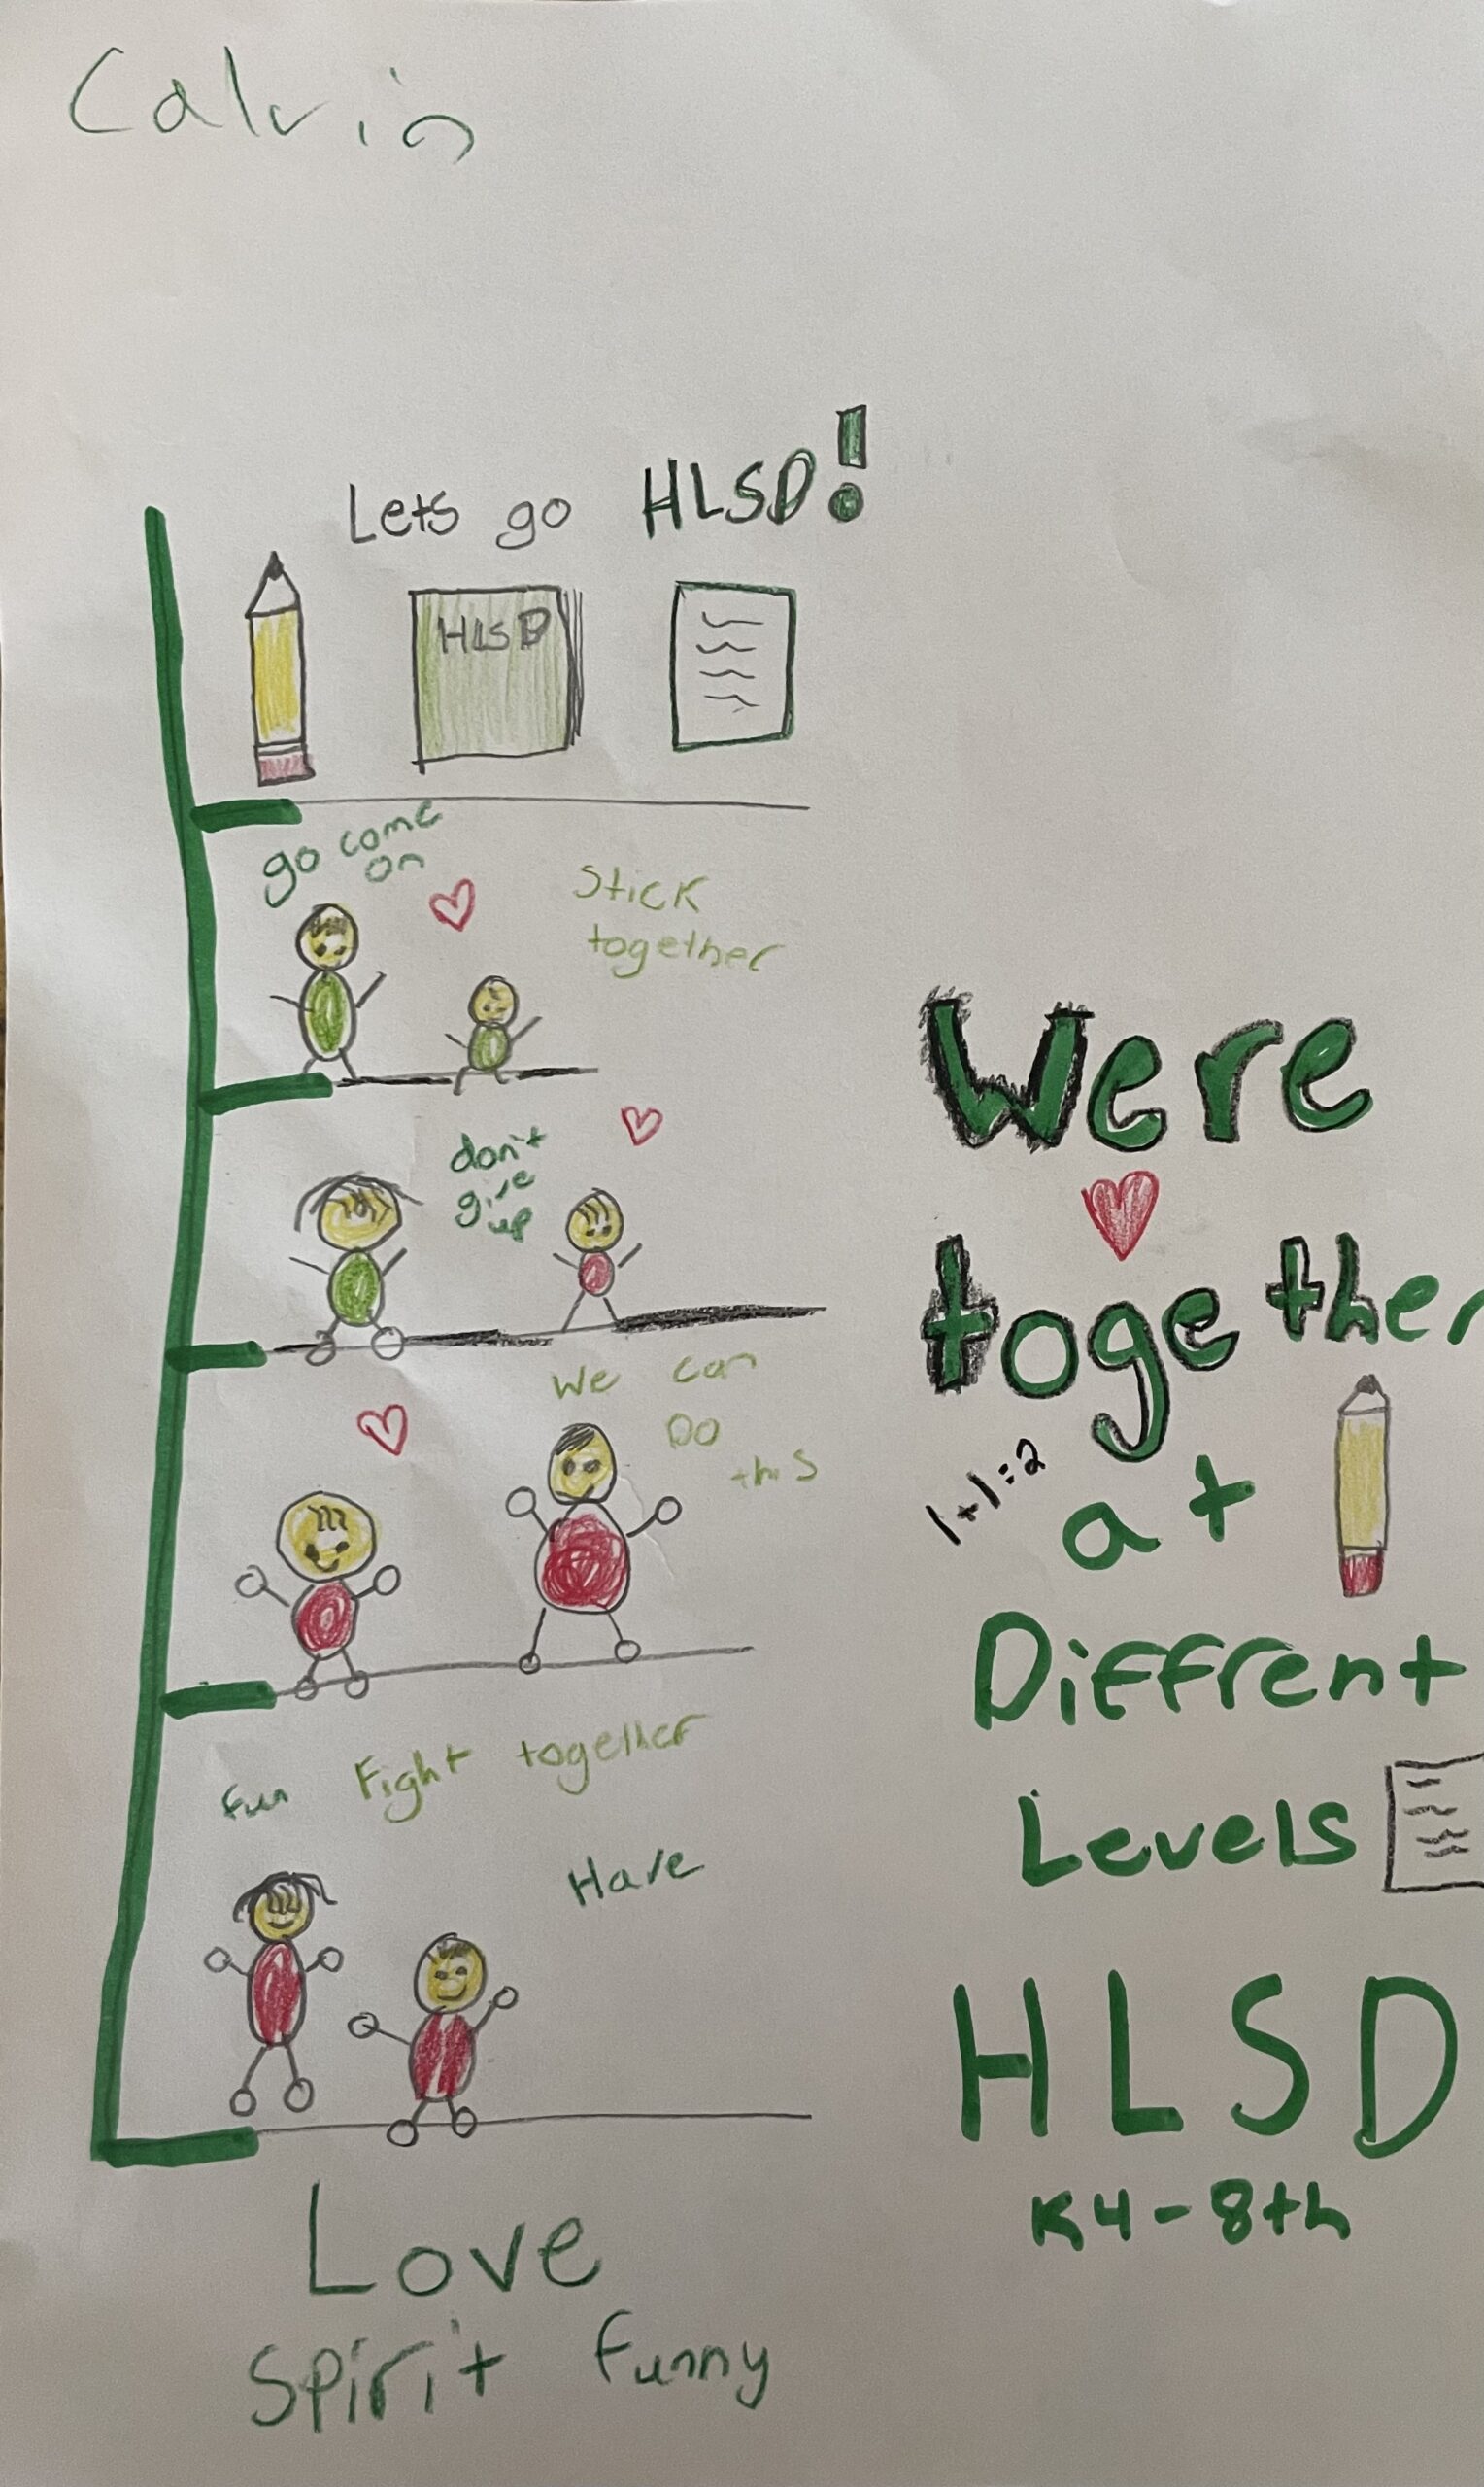 Calvin
Lets go HLSD!
HLSD
go come
on
Stick
together
don't
give
up
We can
DO
this
Fun Fight together
Have
Love
Spirit Funny
Were
together
1+1=2
at
Diffrent
Levels
HLSD
K4-8th